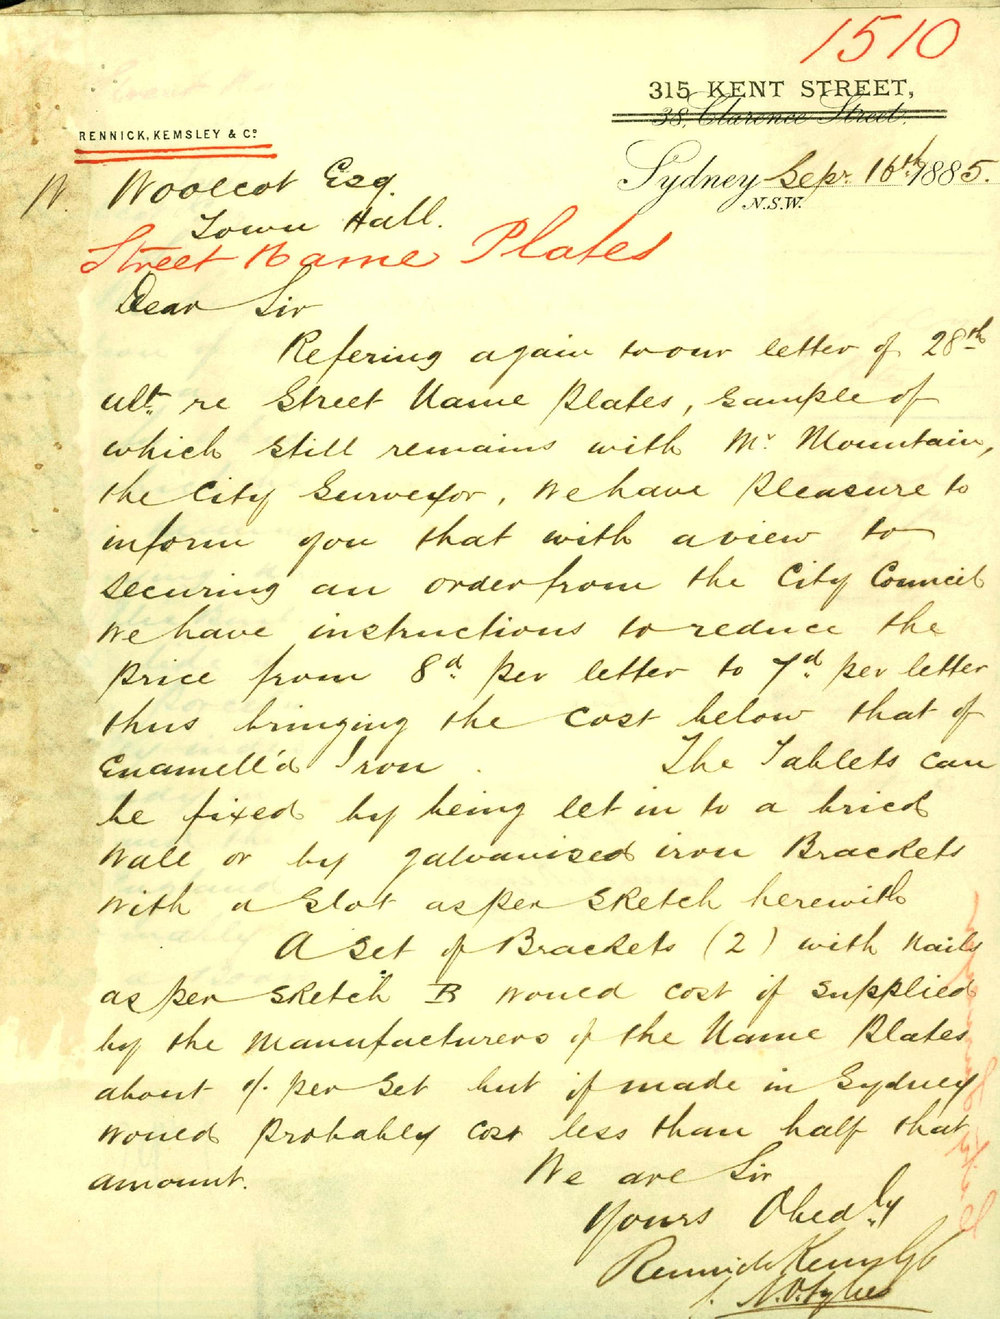 1510
315 KENT STREET,
38, Clarence Street,
RENNICK, KEMSLEY & Co.
Sydney Sepr. 16th 1885.
N.S.W.
W. Woolcot Esq.
Town Hall.
Street Name Plates
Dear Sir
Refering again to our letter of 28th
ult. re Street Name Plates, sample of
which still remains with Mr Mountain,
the City Surveyor, we have pleasure to
inform you that with a view to
securing an order from the City Council
we have instructions to reduce the
price from 8d. per letter to 7d. per letter
thus bringing the cost below that of
Enamell'd Iron. The Tablets can
be fixed by being let in to a brick
wall or by galvanised iron Brackets
with a slot as per sketch herewith
A set of Brackets (2) with nails
as per sketch B would cost if supplied
by the manufacturers of the Name Plates
about per set but if made in Sydney
would probably cost less than half that
amount. We are Sir
Yours Obedly
Rennick Kemsley & Co